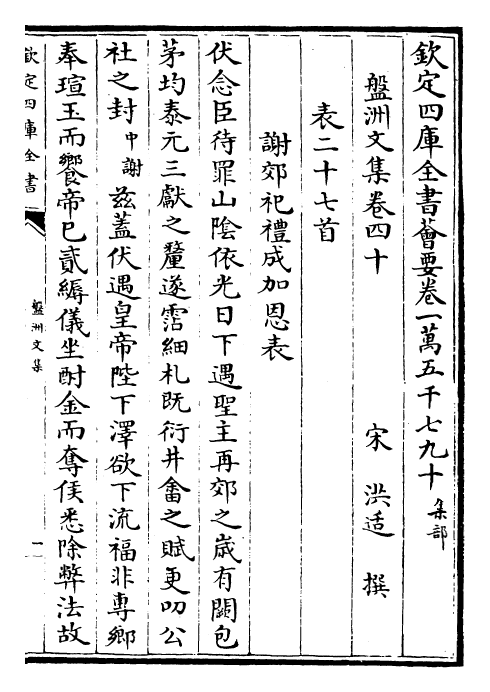 欽定四庫全書薈要卷一萬五千七九十 集部
盤洲文集卷四十 宋 洪适 撰
表二十七首
謝郊祀禮成加恩表
伏念臣待罪山陰依光日下遇聖主再郊之歲有闕包
茅均泰元三獻之釐遂霑細札既衍井畬之賦更叨公
社之封中謝兹蓋伏遇皇帝陛下澤欲下流福非專鄉
奉瑄玉而饗帝已貳縟儀坐酎金而奪侯悉除弊法故
欽定四庫全書
盤洲文集
一